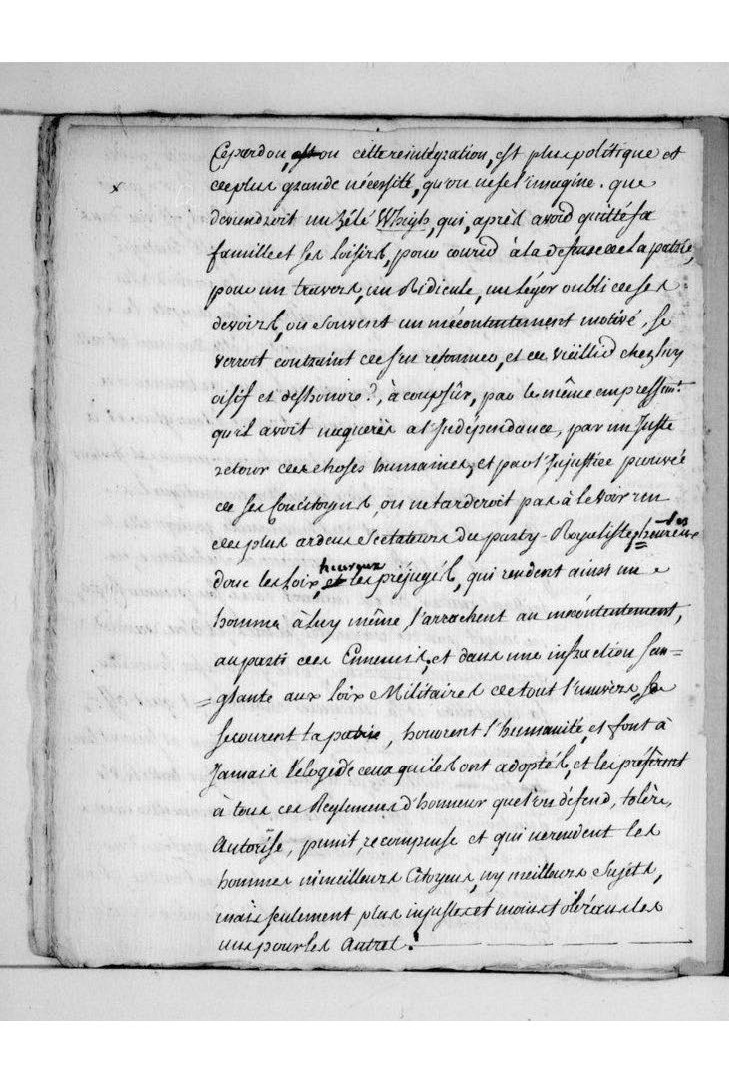 Ce pardon, est ou cette reintégration, est plus politique et
de plus grande nécessité, qu'on ne se l'imagine. que
deviendroit un Zélé Whigh, qui, après avoir quitté sa
famille et ses loisirs, pour courir à la defense de la patrie,
pour un travers, un Ridicule, un léger oubli de ses
devoirs, ou souvent un mécontentement motivé, se
verroit contraint de s'en retourner, et de vieillir chez luy
oisif et deshonoré?, à coup sûr, par le même empressemt.
qu'il avoit naguères a l'Indépendance, par un Juste
retour des choses humaines, et par l'Injustice prouvée
de ses Concitoyens, on ne tarderoit pas à le voir un
des plus ardens Sectateurs du party-Royaliste, heureuses
les
donc les Loix, et les préjugés, qui rendent ainsi un
heureux
homme à luy même l'arrachent au mécontentement,
au parti des Ennemis, et dans une infraction san=
=glante aux loix Militaires de tout l'univers, se
secourent la patrie, honorent l'humanité, et font à
Jamais l'eloge de ceux qui les ont adoptés, et les préfèrent
à tous ces Reglemens d'honneur que l'on défend, tolère,
Autorise, punit, recompense et qui ne rendent les
hommes ni meilleurs Citoyens, ny meilleurs Sujets,
mais seulement plus injustes et moins tolérans les
uns pour les Autres.